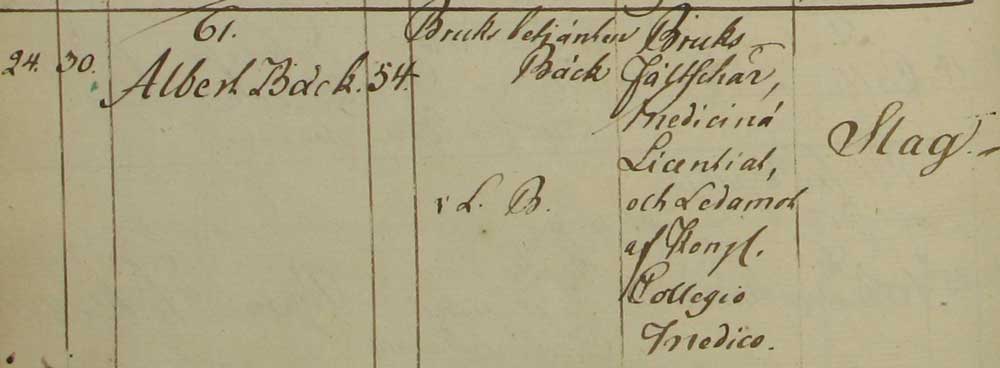 61.
24. 30. Albert Bäck. 54.
Bruksbetjänten
Bäck
i L. B.
Bruks
Fältschär,
Medicinä
Licentiat,
och Ledamot
af Kongl.
Collegio
Medico.
Slag